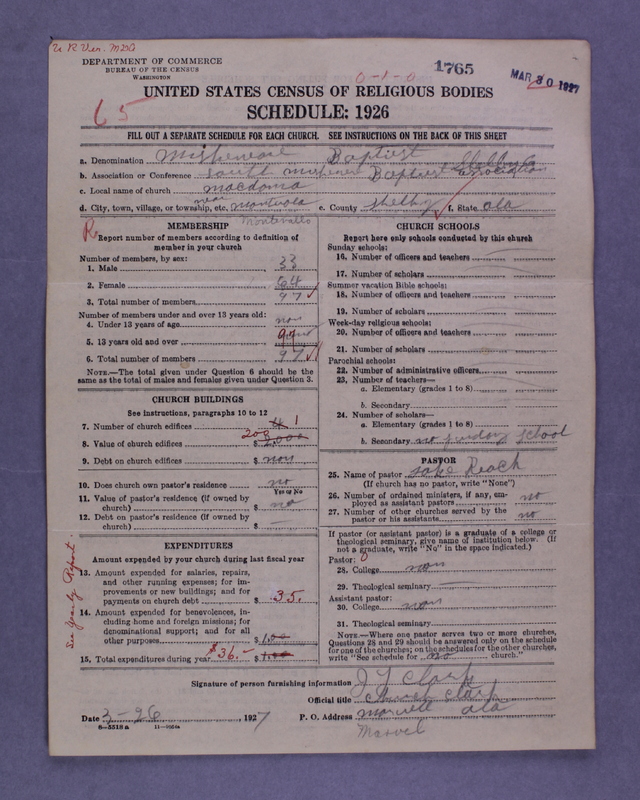 DEPARTMENT OF COMMERCE
BUREAU OF THE CENSUS
WASHINGTON
0-1-0
1765
MAR 30 1927
65
UNITED STATES CENSUS OF RELIGIOUS BODIES
SCHEDULE: 1926
FILL OUT A SEPARATE SCHEDULE FOR EACH CHURCH. SEE INSTRUCTIONS ON THE BACK OF THIS SHEET
a. Denomination Baptist
b. Association or Conference Baptist association
c. Local name of church macedonia
d. City, town, village, or township, etc. near e. County Shelby f. State ala
Montevallo
MEMBERSHIP
Report number of members according to definition of member in your church
Number of members, by sex:
1. Male 33
2. Female 64
3. Total number of members 97
Number of members under and over 13 years old:
4. Under 13 years of age non
5. 13 years old and over 97
6. Total number of members 97
NOTE.—The total given under Question 6 should be the same as the total of males and females given under Question 3.
CHURCH BUILDINGS
See instructions, paragraphs 10 to 12
7. Number of church edifices 1
8. Value of church edifices $
9. Debt on church edifices $ non
10. Does church own pastor's residence? no
Yes or No
11. Value of pastor's residence (if owned by church) $ no
12. Debt on pastor's residence (if owned by church) $ —
EXPENDITURES
Amount expended by your church during last fiscal year
13. Amount expended for salaries, repairs, and other running expenses; for improvements or new buildings; and for payments on church debt $ 35.
14. Amount expended for benevolences, including home and foreign missions; for denominational support; and for all other purposes $ 1.00
15. Total expenditures during year $36.— $ 1.00
See yearly Report.
CHURCH SCHOOLS
Report here only schools conducted by this church
Sunday schools:
16. Number of officers and teachers
17. Number of scholars
Summer vacation Bible schools:
18. Number of officers and teachers
19. Number of scholars
Week-day religious schools:
20. Number of officers and teachers
21. Number of scholars
Parochial schools:
22. Number of administrative officers
23. Number of teachers—
a. Elementary (grades 1 to 8)
b. Secondary
24. Number of scholars—
a. Elementary (grades 1 to 8)
b. Secondary no sunday school
PASTOR
25. Name of pastor Jake Roach
(If church has no pastor, write "None")
26. Number of ordained ministers, if any, employed as assistant pastors no
27. Number of other churches served by the pastor or his assistants no
If pastor (or assistant pastor) is a graduate of a college or theological seminary, give name of institution below. (If not a graduate, write "No" in the space indicated.)
Pastor: 0
28. College non
29. Theological seminary
Assistant pastor:
30. College non
31. Theological seminary
NOTE.—Where one pastor serves two or more churches, Questions 28 and 29 should be answered only on the schedule for one of the churches; on the schedules for the other churches, write "See schedule for no church."
Signature of person furnishing information Clark
Official title Church Clark
Date 3-26, 1927 P. O. Address ala
Marvel
8-5518 a